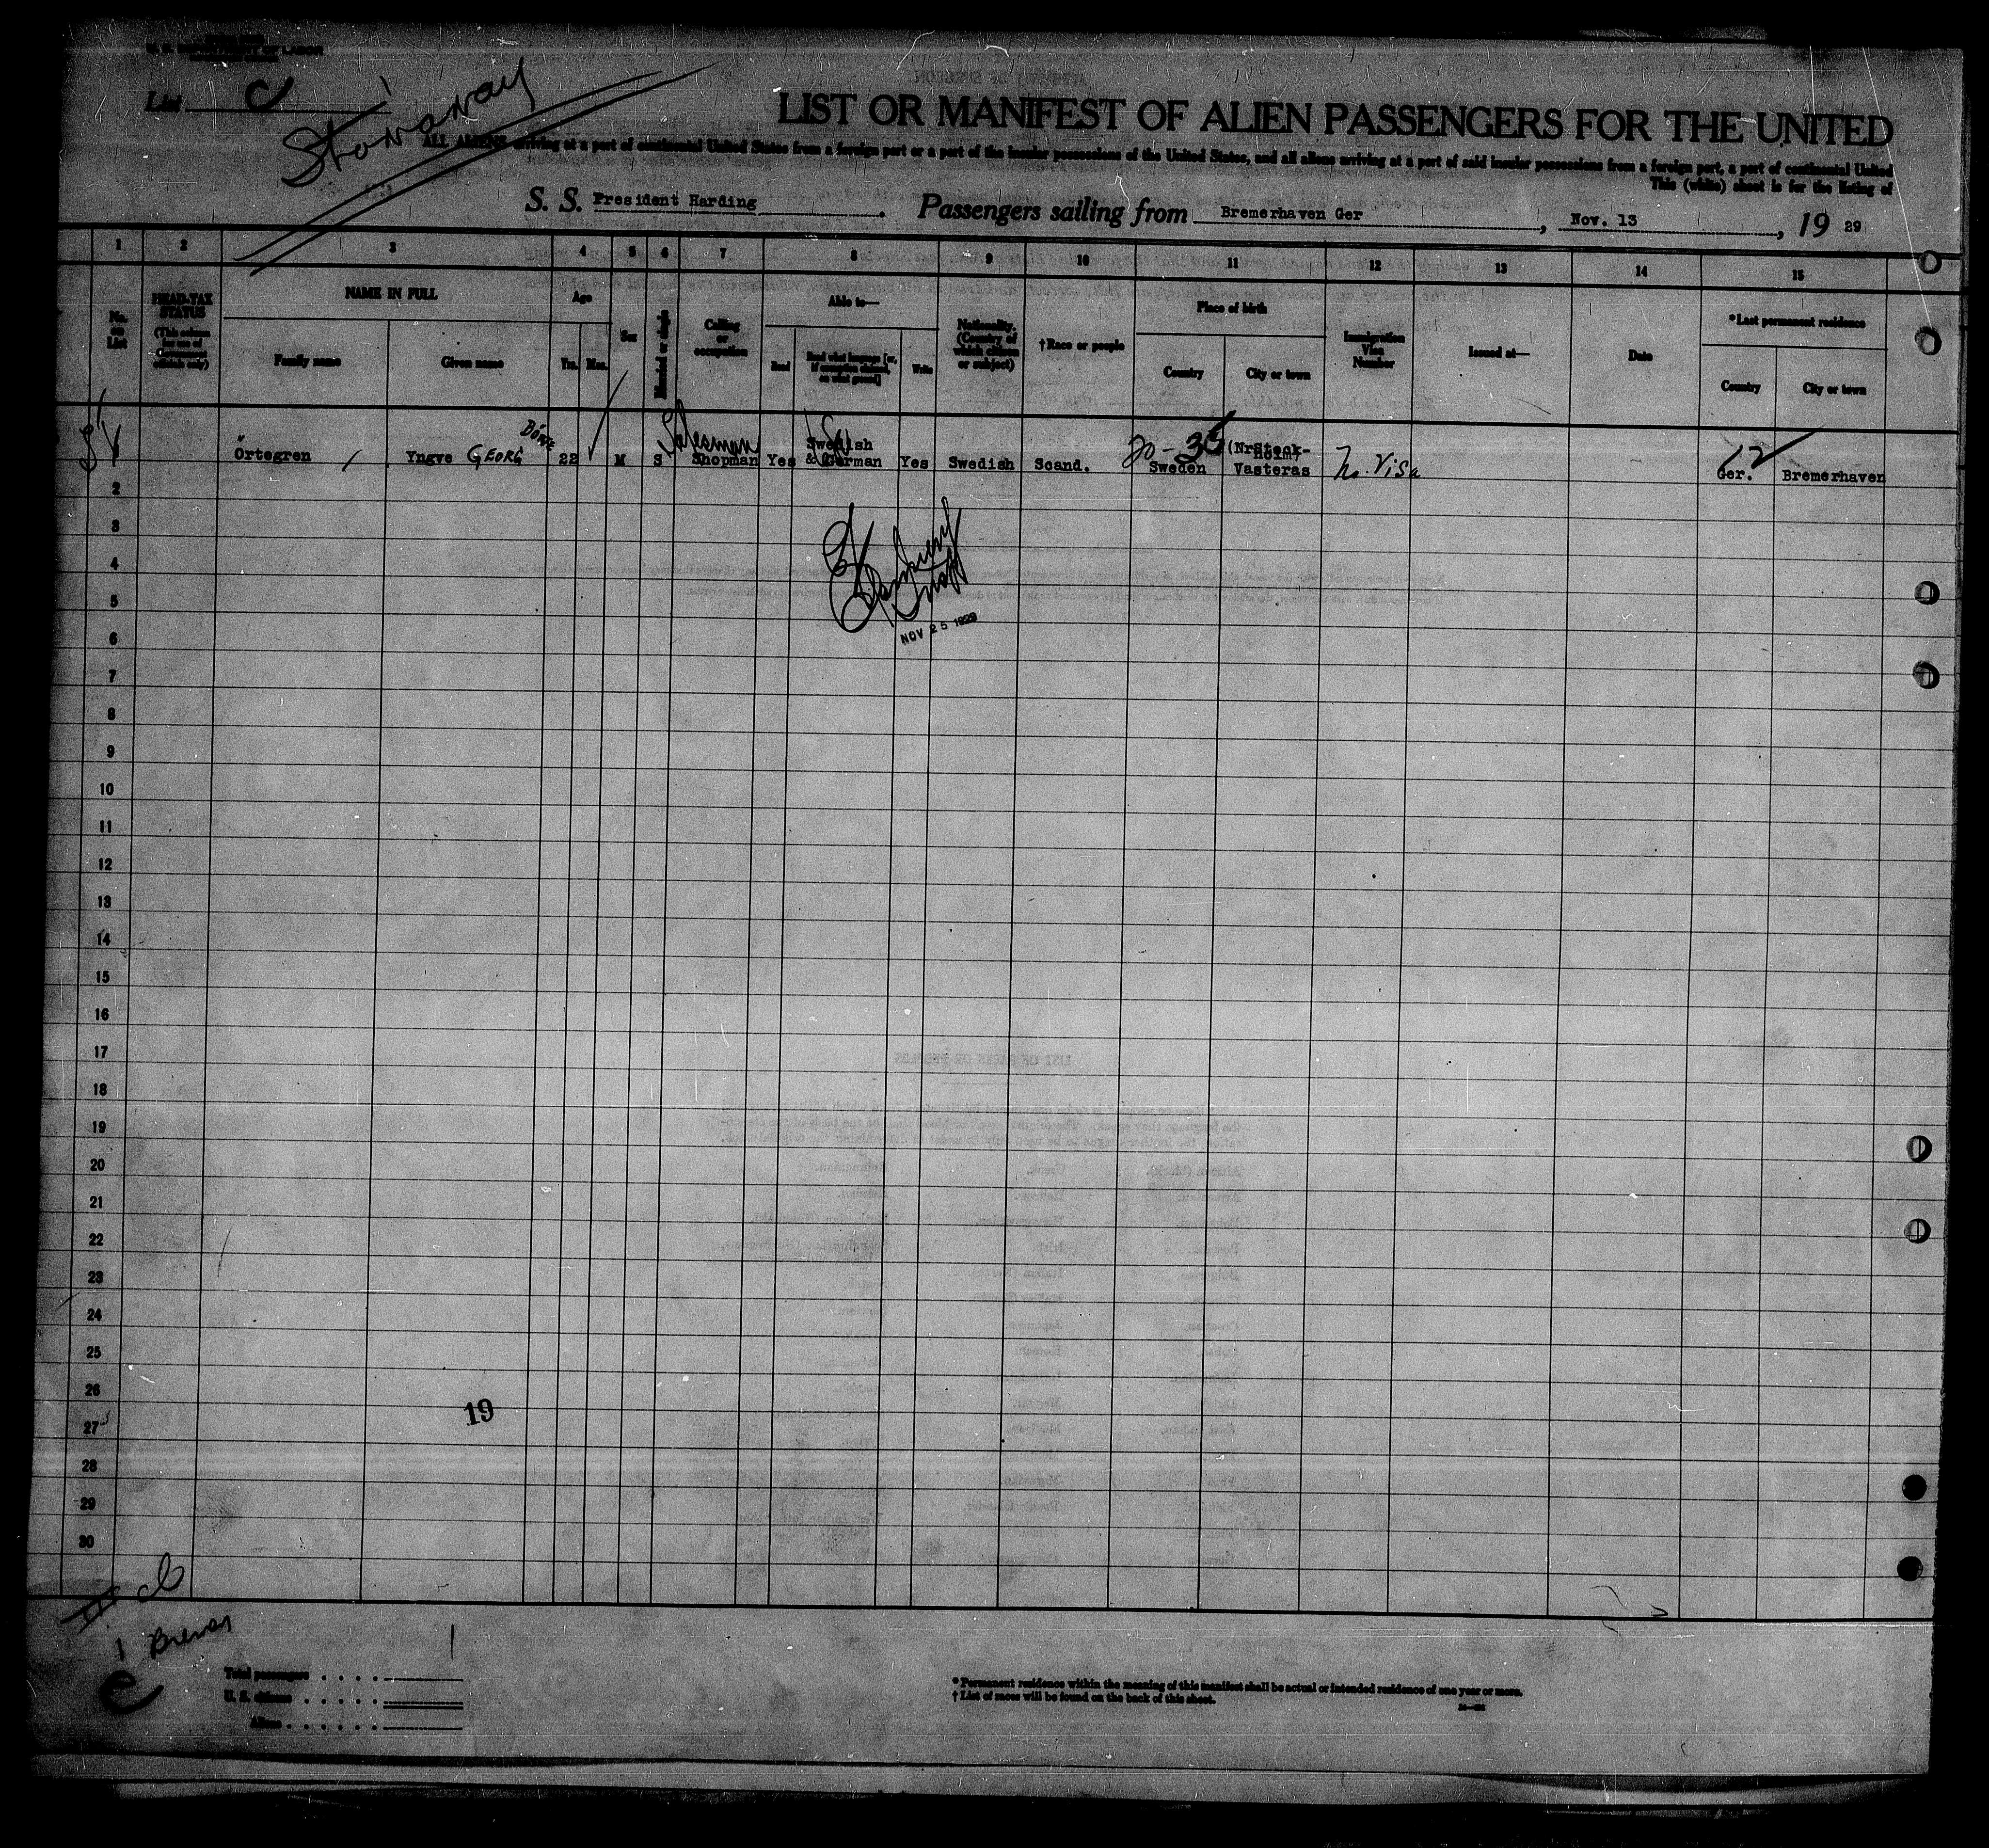 U. S. DEPARTMENT OF LABOR
List C
Stowaway
LIST OR MANIFEST OF ALIEN PASSENGERS FOR THE UNITED
ALL ALIENS arriving at a port of continental United States from a foreign port or a port of the insular possessions of the United States, and all aliens arriving at a port of said insular possessions from a foreign port, a port of continental United
This (white) sheet is for the listing of
S. S. President Harding. Passengers sailing from Bremerhaven Ger, Nov. 13, 19 29
1 2 3 4 5 6 7 8 9 10 11 12 13 14 15
No. on List
HEAD-TAX STATUS (This column for use of Government officials only)
NAME IN FULL
Family name
Given name
Age
Yrs. Mos.
Sex
Married or single
Calling or occupation
Able to—
Read
Read what language [or, if exemption claimed, on what ground]
Write
Nationality. (Country of which citizen or subject)
†Race or people
Place of birth
Country
City or town
Immigration Visa Number
Issued at—
Date
*Last permanent residence
Country
City or town
Örtegren Yngve GEORG 22 M S Salesman Shopman Yes Swedish & German Yes Swedish Scand. Sweden (Nr Stockholm) Vasteras No Visa Ger. Bremerhaven
2
3
4
5
NOV 25 1929
6
7
8
9
10
11
12
13
14
15
16
17
18
19
20
21
22
23
24
25
26
19
27
28
29
30
1 Bremen
1
Total passengers
U. S. citizens
Aliens
* Permanent residence within the meaning of this manifest shall be actual or intended residence of one year or more.
† List of races will be found on the back of this sheet.